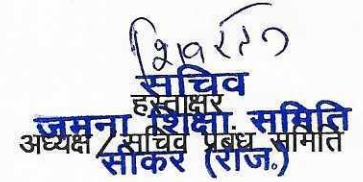 सचिव
हस्ताक्षर
जमना शिक्षा समिति
अध्यक्ष / सचिव प्रबंध समिति
सीकर (राज.)